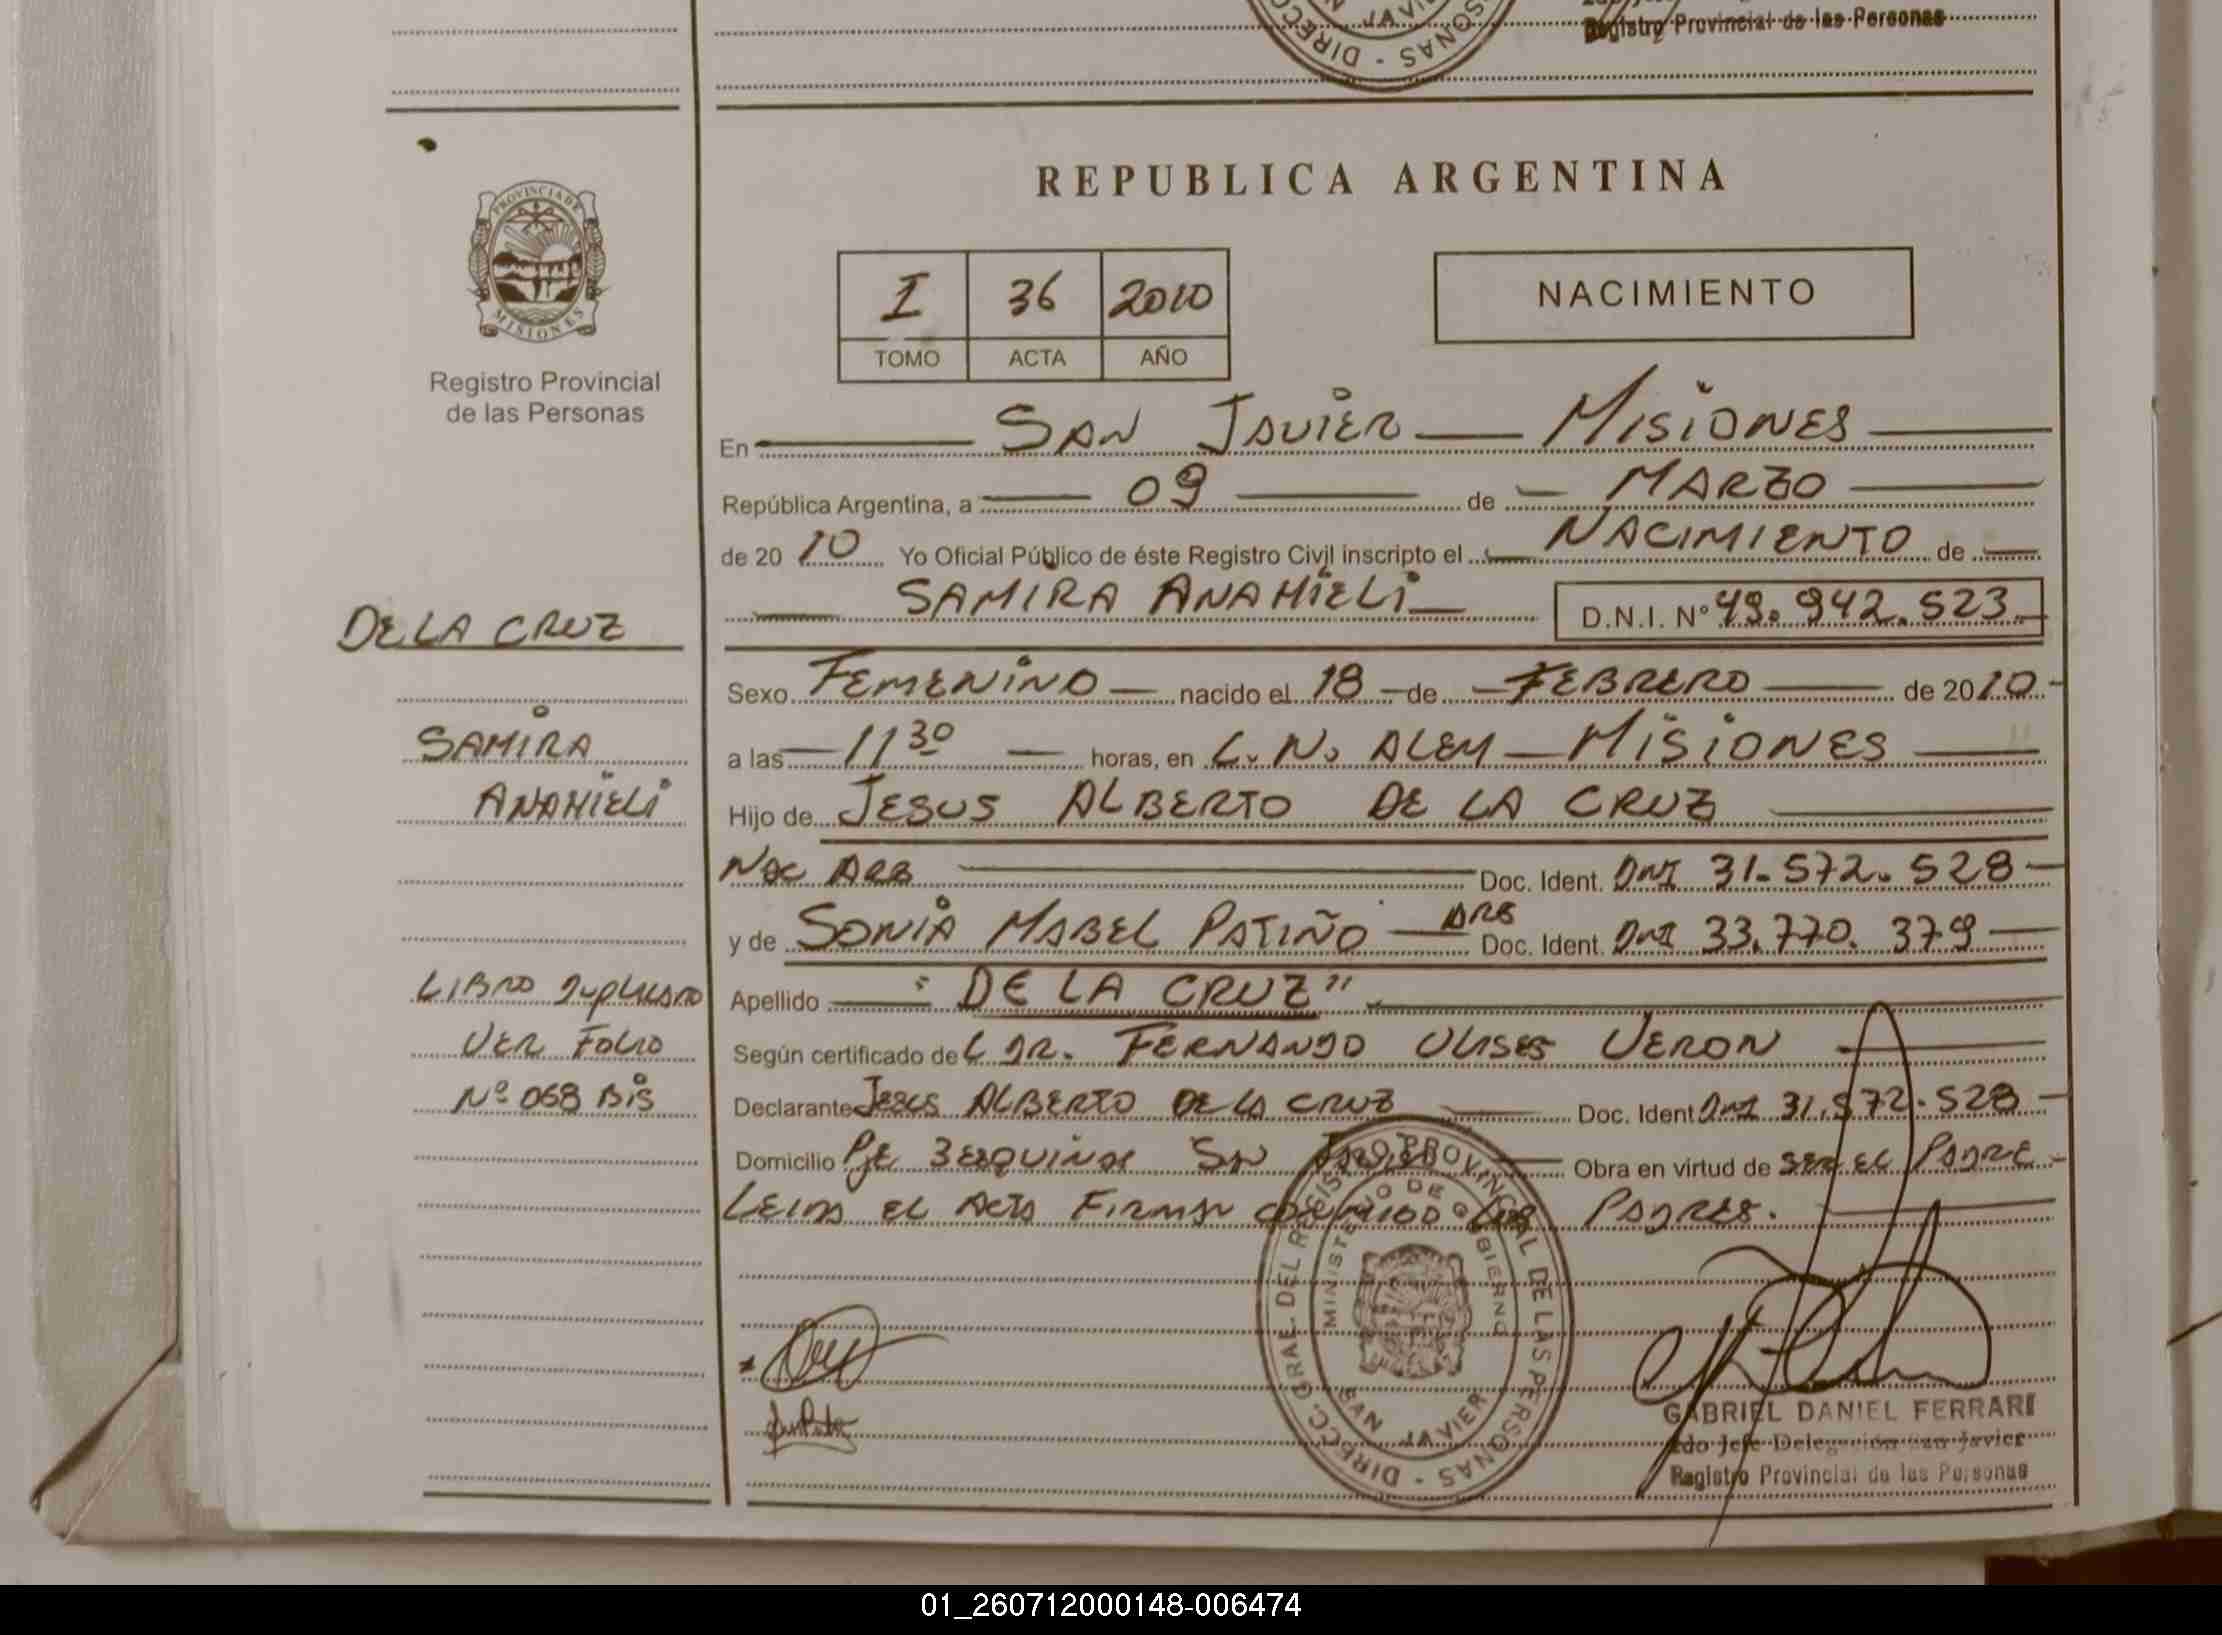 Registro Provincial de las Personas
REPUBLICA ARGENTINA
PROVINCIA DE
MISIONES
Registro Provincial
de las Personas
I 36 2010
TOMO ACTA AÑO
NACIMIENTO
En SAN JAVIER MISIONES
República Argentina, a 09 de MARZO
de 2010 Yo Oficial Público de éste Registro Civil inscripto el NACIMIENTO de
SAMIRA ANAHIELI D.N.I. Nº 49.942.523
DE LA CRUZ
SAMIRA
ANAHIELI
Sexo FEMENINO nacido el 18 de FEBRERO de 2010
a las 11 30 horas, en L. N. ALEM MISIONES
Hijo de JESUS ALBERTO DE LA CRUZ
NAC ARG Doc. Ident. DNI 31.572.528
y de SONIA MABEL PATIÑO ARG Doc. Ident. DNI 33.770.379
Apellido "DE LA CRUZ"
LIBRO
VER FOLIO
Nº 068 BIS
Según certificado del DR. FERNANDO ULISES VERON
Declarante JESUS ALBERTO DE LA CRUZ Doc. Ident DNI 31.572.528
Domicilio Pje 3 ESQUINAS SAN JAVIER Obra en virtud de SER EL PADRE
LEIDA EL ACTA FIRMAN CONMIGO LOS PADRES.
DIRECC. GRAL. DEL REGISTRO PROVINCIAL DE LAS PERSONAS
MINISTERIO DE GOBIERNO
SAN JAVIER
GABRIEL DANIEL FERRARI
Jefe Delegación San Javier
Registro Provincial de las Personas
01_260712000148-006474